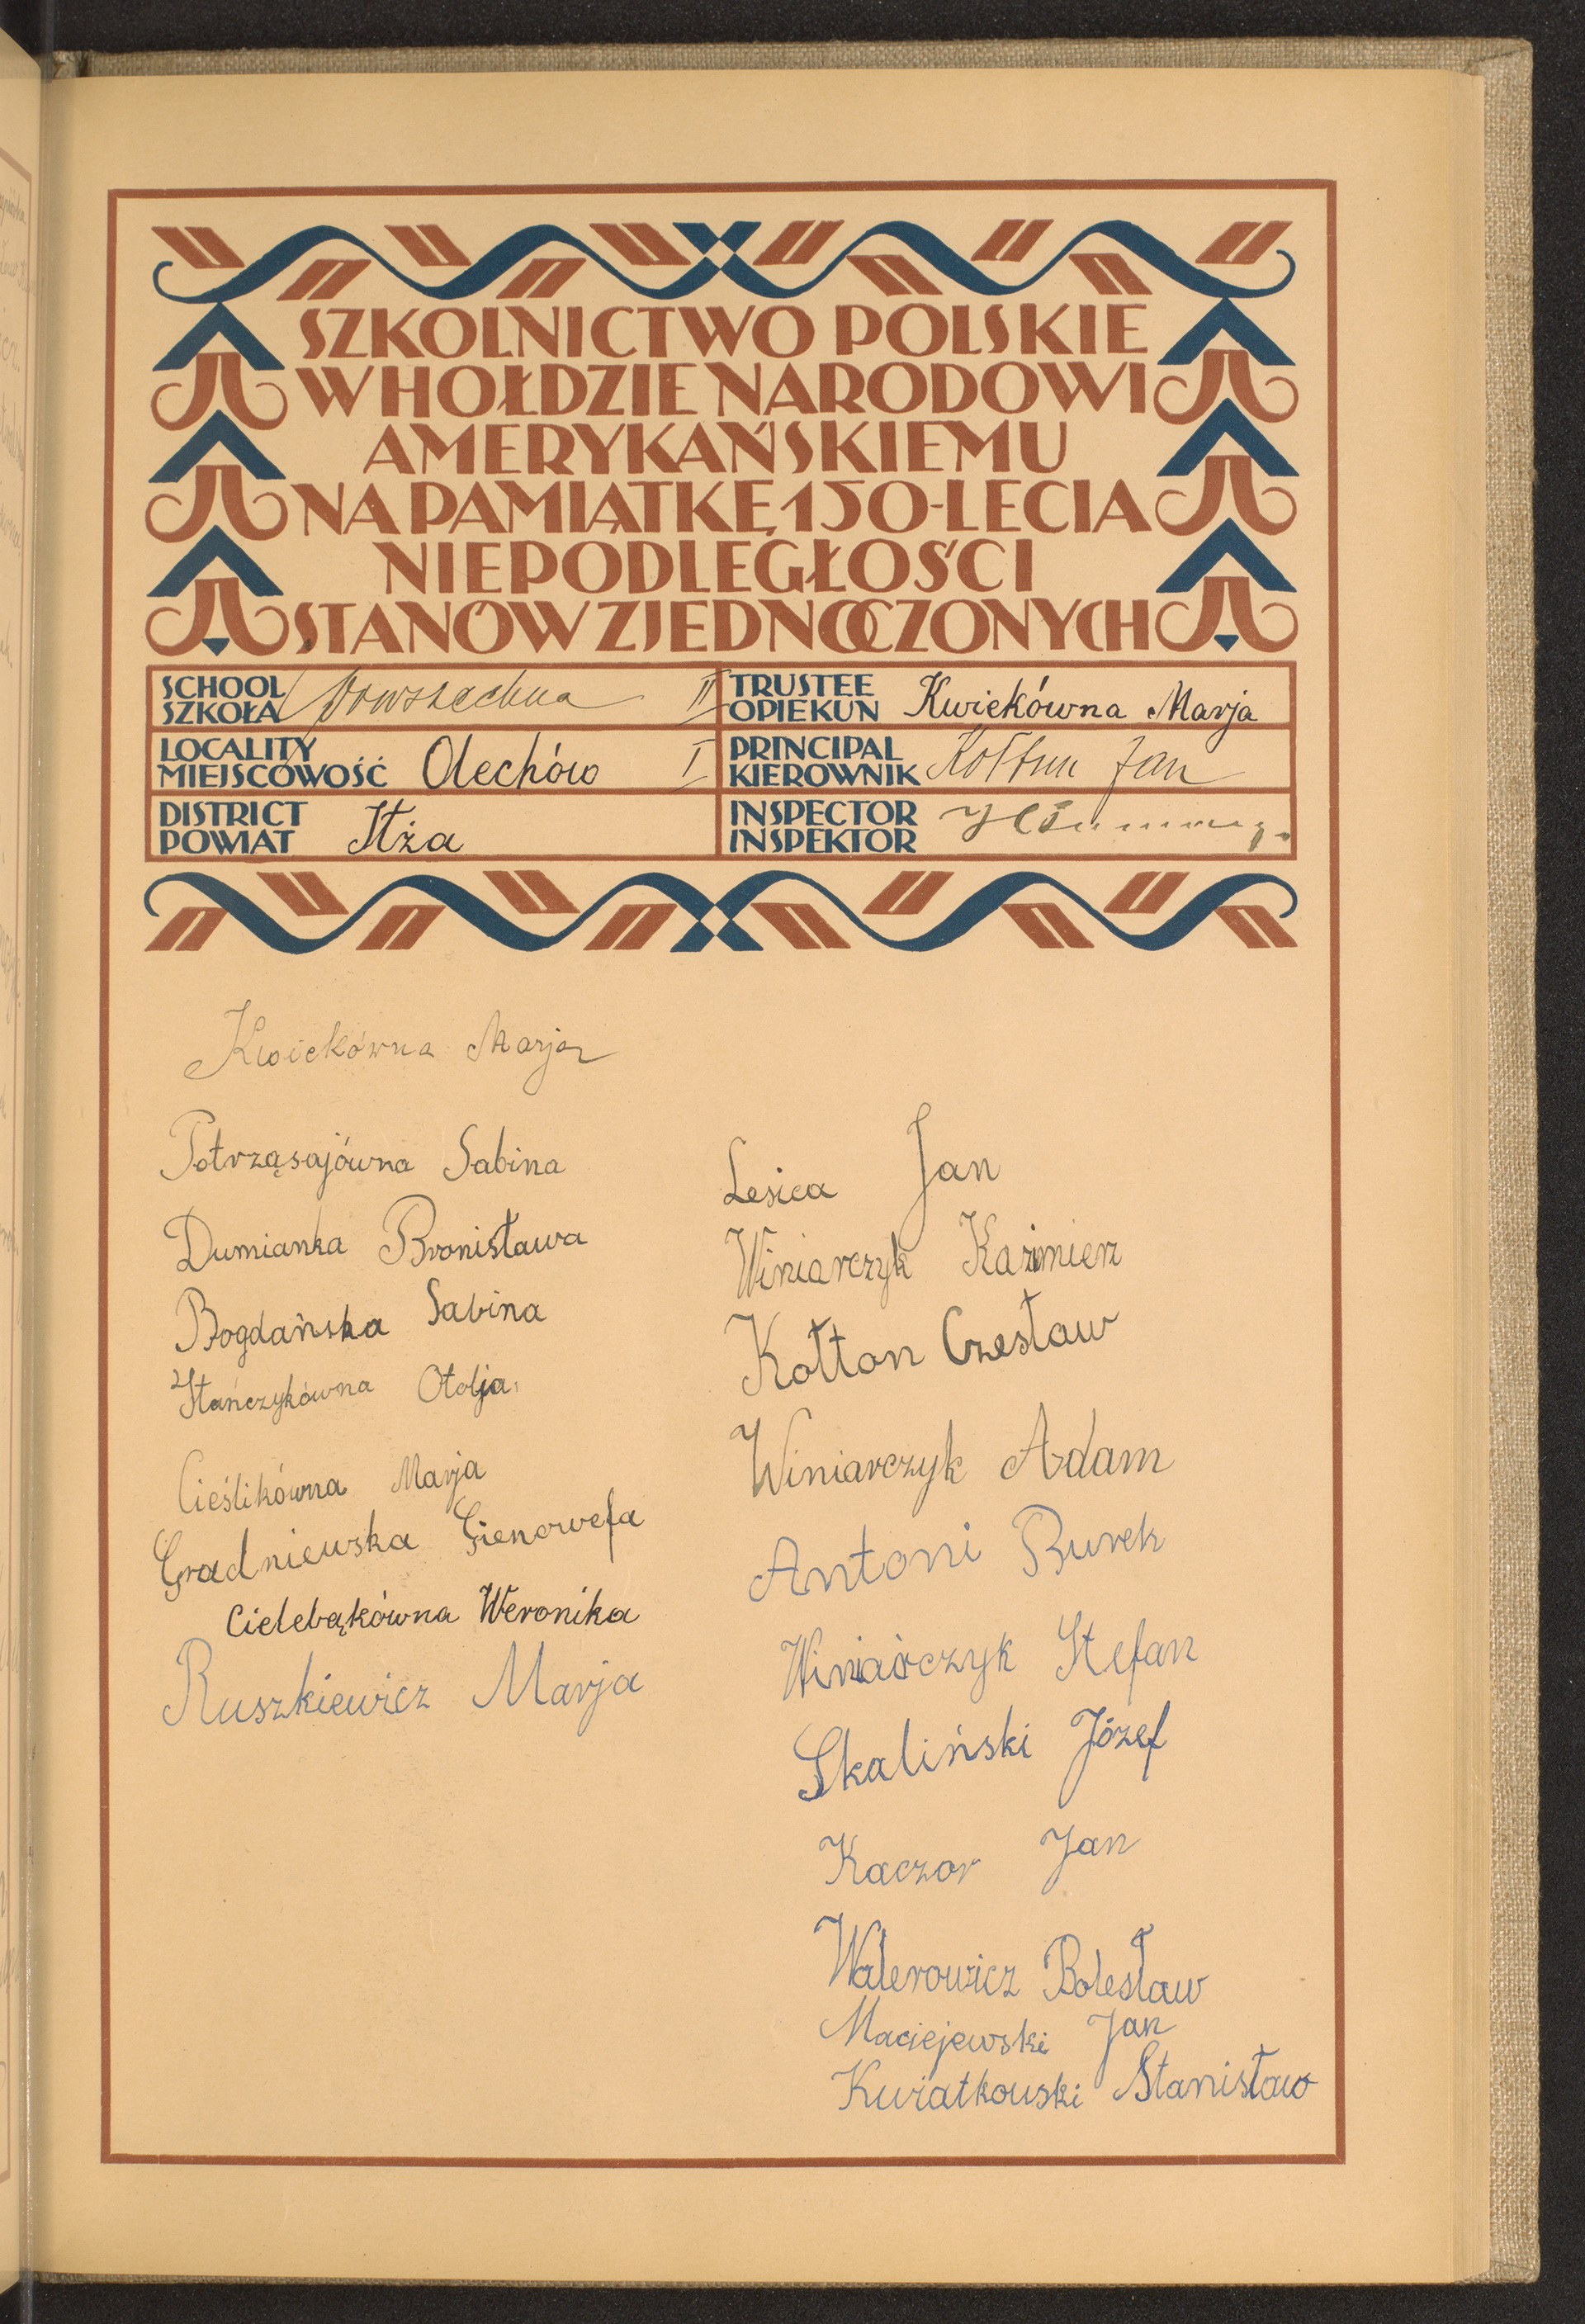 SZKOLNICTWO POLSKIE
W HOŁDZIE NARODOWI
AMERYKAŃSKIEMU
NA PAMIĄTKĘ 150-LECIA
NIEPODLEGŁOŚCI
STANÓW ZJEDNOCZONYCH
SCHOOL
SZKOŁA Powszechna II
LOCALITY
MIEJSCOWOŚĆ Olechów I
DISTRICT
POWIAT Iłża
TRUSTEE
OPIEKUN Kwiekówna Marja
PRINCIPAL
KIEROWNIK Kołtun Jan
INSPECTOR
INSPEKTOR
Kwiekówna Marja
Potrząsajówna Sabina
Dumianka Bronisława
Bogdańska Sabina
Stańczykówna Otolja
Cieślikówna Marja
Gradniewska Gienowefa
Cielebąkówna Weronika
Ruszkiewicz Marja
Lesica Jan
Winiarczyk Kazimierz
Kołton Czesław
Winiarczyk Adam
Antoni Burek
Winiarczyk Stefan
Skaliński Józef
Kaczor Jan
Walerowicz Bolesław
Maciejewski Jan
Kwiatkouski Stanisław